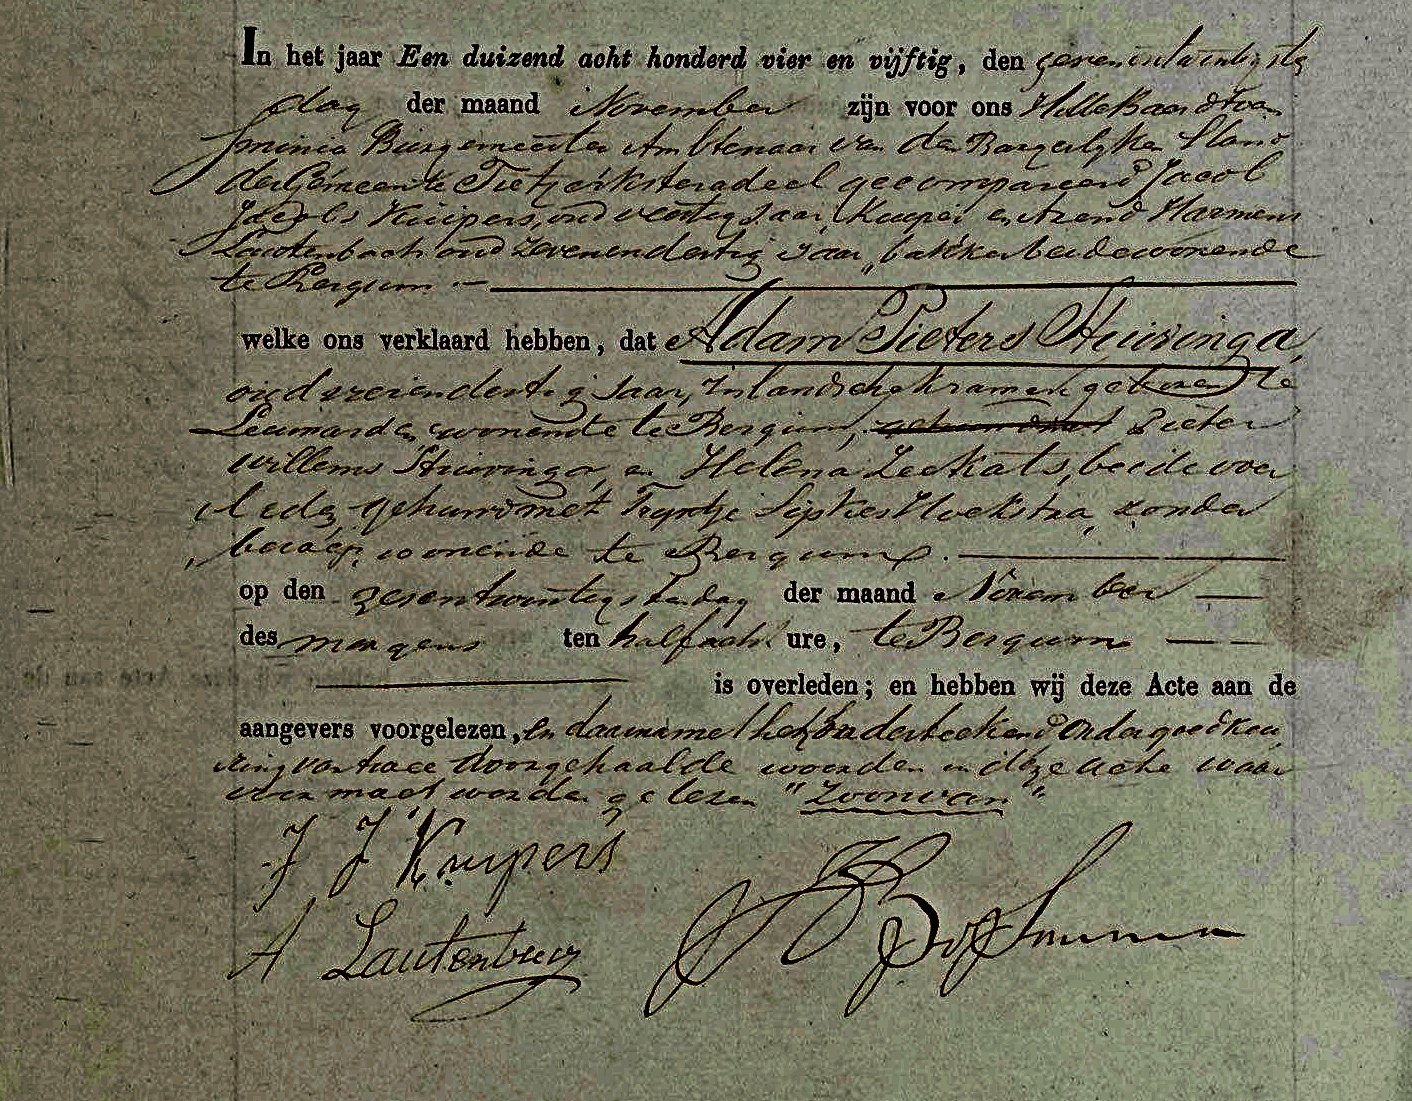 In het jaar Een duizend acht honderd vier en vijftig, den zevenentwintigste
dag der maand November zijn voor ons Hille Baard van
Sminia Burgemeester Ambtenaar van den Burgerlyken Stand
der Gemeente Tietjerksteradeel gecompareerd Jacob
Jacobs Kuipers, oud veertig Jaar, Kuiper en Arend Harmens
Lautenbach oud zevenendertig Jaar, bakker beide wonende
te Bergum
welke ons verklaard hebben, dat Adam Pieters Huizinga,
oud Jaar, Inlandsche kramer geboren te
Leeuwarden wonende te Bergum, Pieter
Willems Huizinga, en Helena Zeekats, beide over
leden, gehuwd met Tryntje Sipkes Hoekstra, zonder
beroep, wonende te Bergum.
op den zesentwintigsten dag der maand November
des morgens ten half acht ure, te Bergum
is overleden; en hebben wij deze Acte aan de
aangevers voorgelezen, en daarna met hen onderteekend onder goedkeu
ring van twee doorgehaalde woorden in deze acte waar
voor moet worden gelezen "zoon van".
J J Kuipers
A Lautenbach